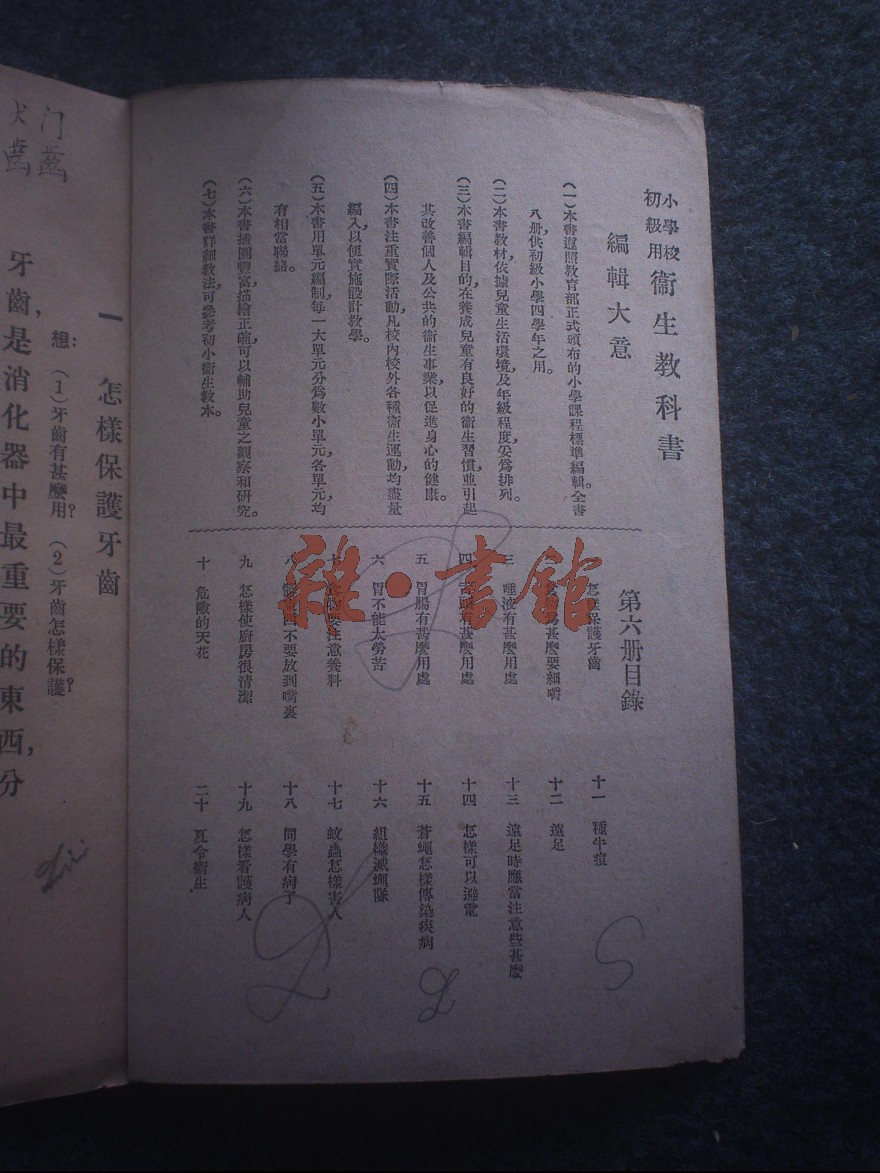 小學校
初級用
衞生教科書
編輯大意
(一)本書遵照教育部正式頒布的小學課程標準編輯。全書
八册，供初級小學四學年之用。
(二)本書教材，依據兒童生活環境，及年級程度，妥爲排列。
(三)本書編輯目的，在養成兒童有良好的衞生習慣，並引起
其改善個人及公共的衞生事業，以促進身心的健康。
(四)本書注重實際活動，凡校內校外各種衞生運動，均盡量
編入，以便實施設計教學。
(五)本書用單元編制，每一大單元分爲數小單元，各單元，均
有相當聯絡。
(六)本書插圖豐富，描繪正確，可以輔助兒童之觀察和研究。
(七)本書詳細教法，可參考初小衞生教本。
第六册目錄
怎樣保護牙齒
爲甚麼要細嚼
三 唾液有甚麼用處
四 舌頭有甚麼用處
五 胃腸有甚麼用處
六 胃不能太勞苦
要注意養料
八 不要放到嘴裏
九 怎樣使廚房很清潔
十 危險的天花
十一 種牛痘
十二 遠足
十三 遠足時應當注意些甚麼
十四 怎樣可以避電
十五 蒼蠅怎樣傳染疾病
十六 組織滅蠅隊
十七 蚊蟲怎樣害人
十八 同學有病了
十九 怎樣看護病人
二十 夏令衞生
雜·書館
门齒
犬齒
一 怎樣保護牙齒
想：(1)牙齒有甚麼用？ (2)牙齒怎樣保護？
牙齒，是消化器中最重要的東西，分